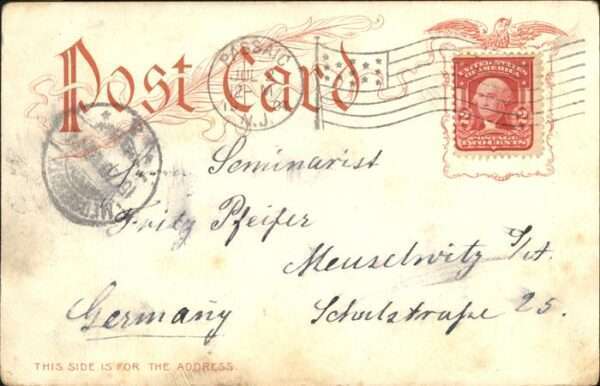 Post Card
PASSAIC
JUL
N.J.
UNITED STATES
OF AMERICA
2 2
POSTAGE
TWO CENTS
Seminarist
Fritz Pfeifer
Meuselwitz S/A.
Germany Schulstraße 25.
THIS SIDE IS FOR THE ADDRESS